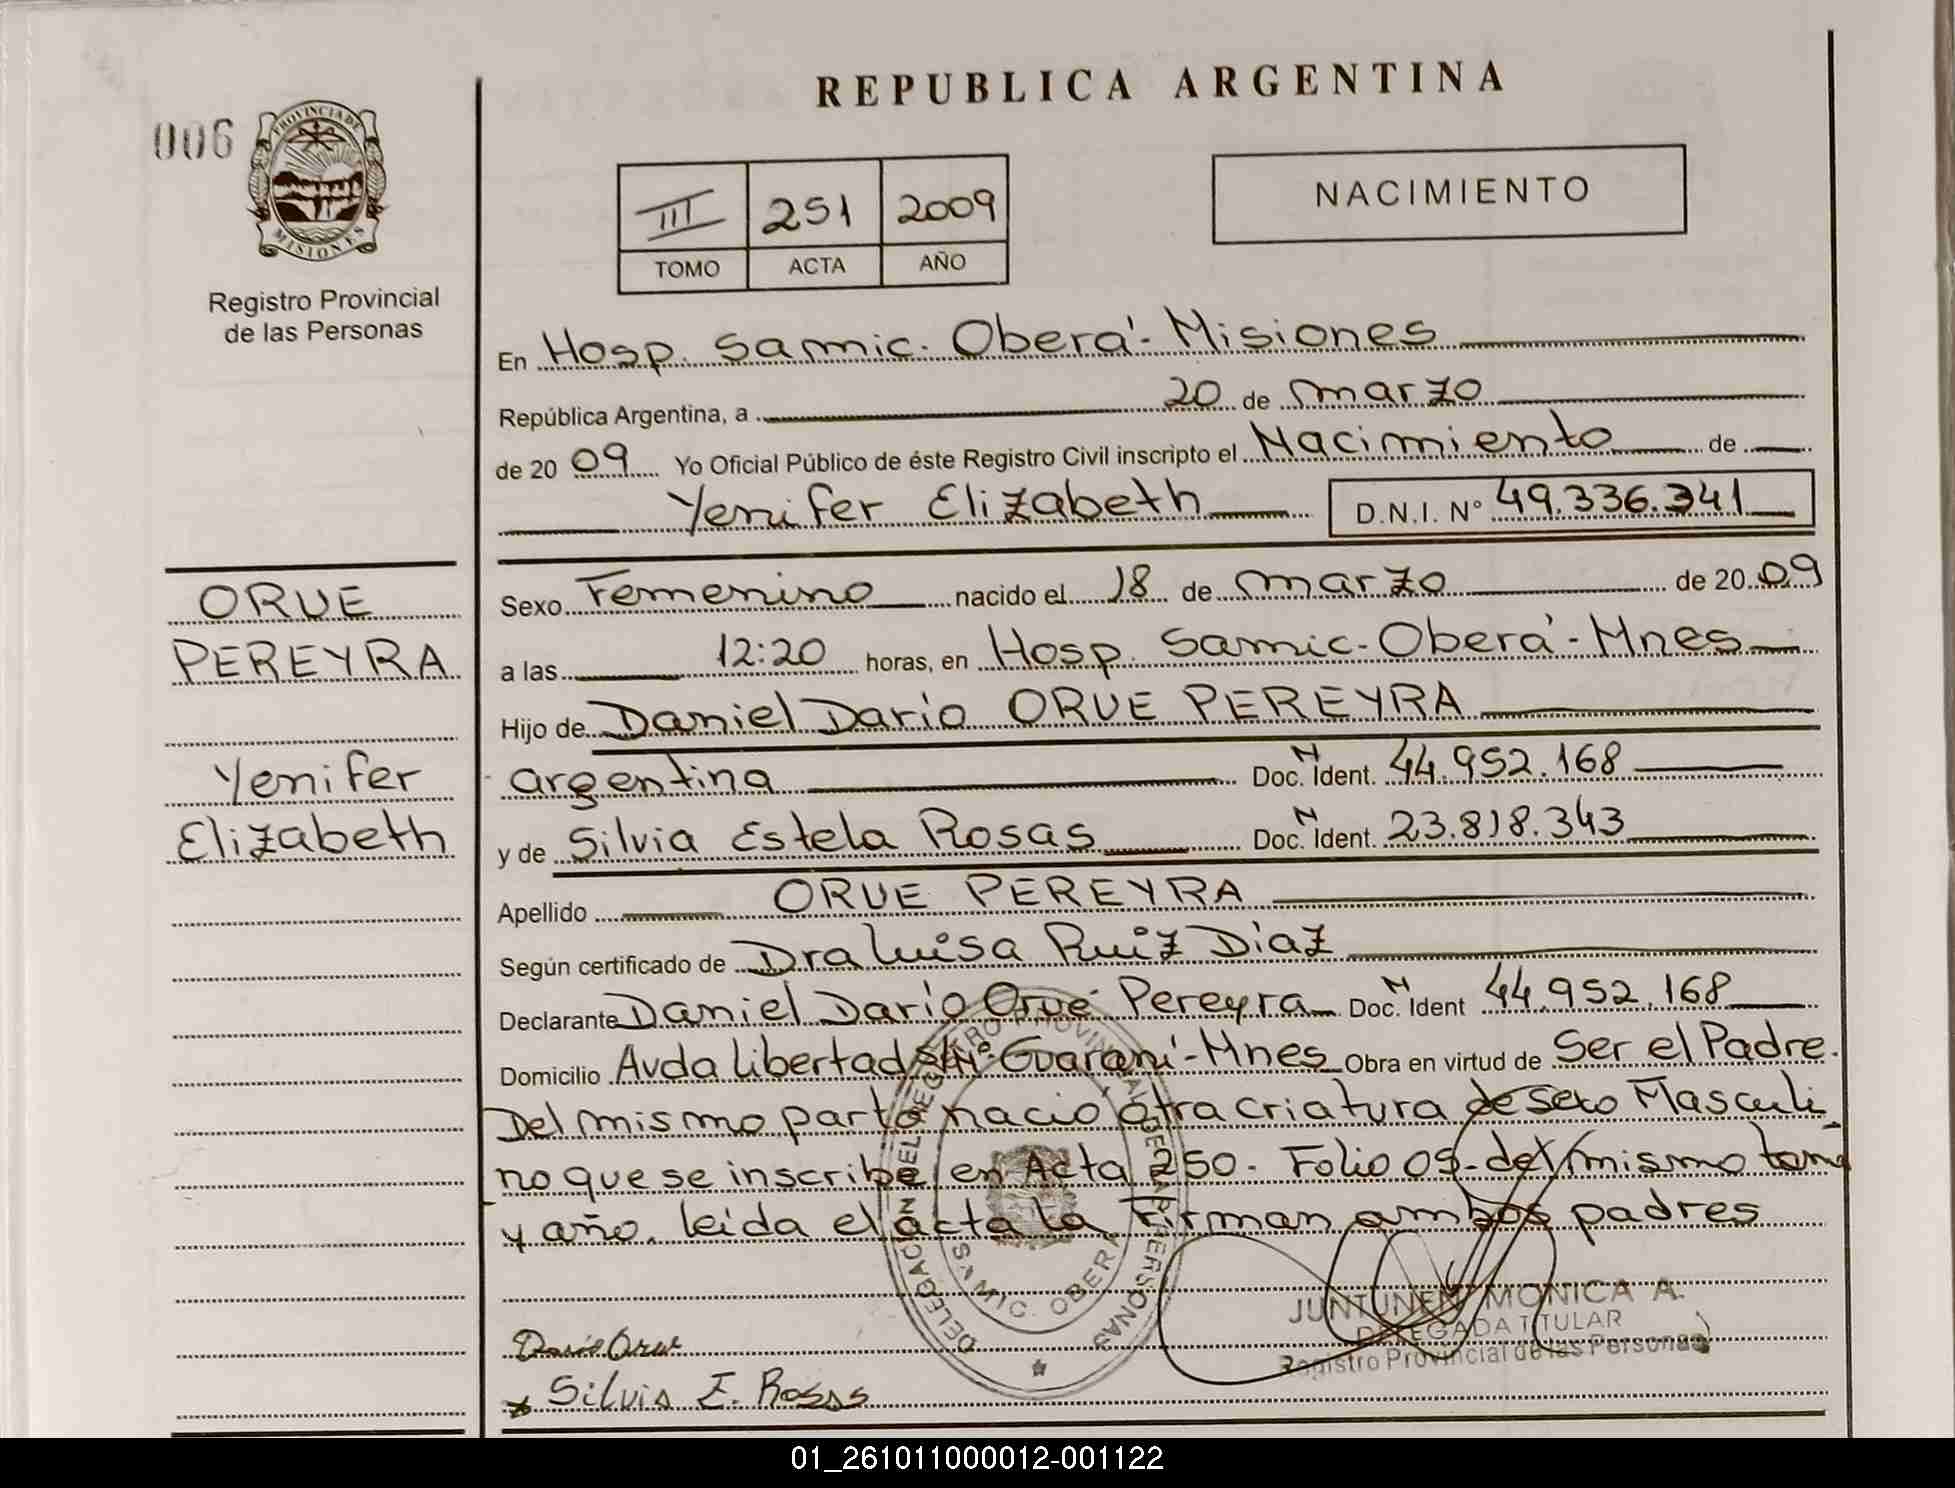 REPUBLICA ARGENTINA
006
PROVINCIA DE
MISIONES
Registro Provincial
de las Personas
III 251 2009
TOMO ACTA AÑO
NACIMIENTO
En Hosp. Samic. Oberá - Misiones
República Argentina, a 20 de marzo
de 2009 Yo Oficial Público de éste Registro Civil inscripto el Nacimiento de
Yenifer Elizabeth D.N.I. N° 49.336.341
ORUE
PEREYRA
Yenifer
Elizabeth
Sexo Femenino nacido el 18 de marzo de 2009
a las 12:20 horas, en Hosp. Samic - Oberá - Mnes
Hijo de Daniel Darío ORUE PEREYRA
argentina Doc. N Ident. 44.952.168
y de Silvia Estela Rosas Doc. N Ident. 23.818.343
Apellido ORUE PEREYRA
Según certificado de Dra Luisa Ruiz Díaz
Declarante Daniel Darío Orué Pereyra Doc. N Ident 44.952.168
Domicilio Avda Libertad S/Nº - Guaraní - Mnes Obra en virtud de Ser el Padre.
Del mismo parto nació otra criatura de sexo Masculi
no que se inscribe en Acta 250 - Folio 05 - del mismo tomo
y año. leída el acta la Firman ambos padres
DELEGACION DEL REGISTRO PROVINCIAL DE LAS PERSONAS
SAMIC. OBERA
JUNTUNEN MONICA A.
DELEGADA TITULAR
Registro Provincial de las Personas
Darío Orue
x Silvia E. Rosas
01_261011000012-001122